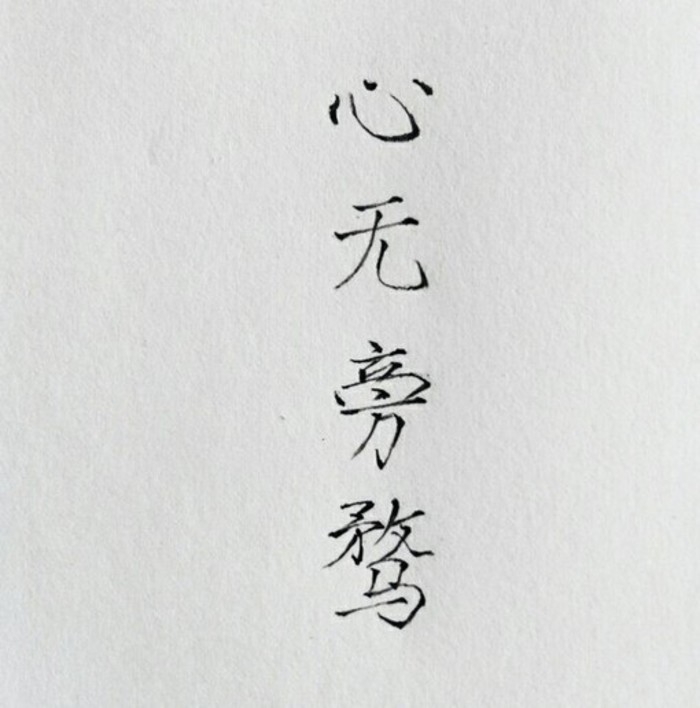 心无旁骛